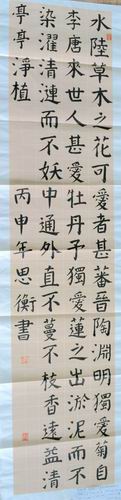 水陸草木之花可愛者甚蕃晉陶淵明獨愛菊自
李唐來世人甚愛牡丹予獨愛蓮之出淤泥而不
染濯清漣而不妖中通外直不蔓不枝香遠益清
亭亭淨植 丙申年思衡書